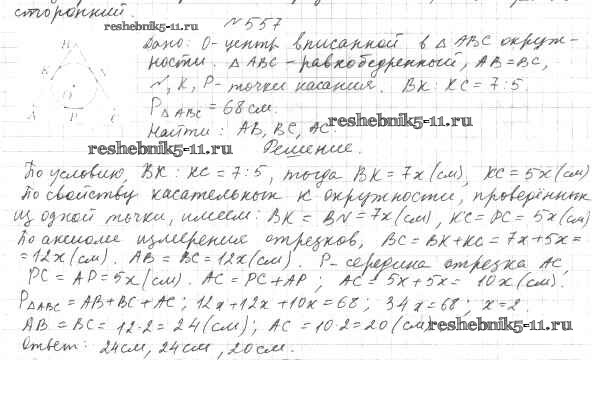 сторонний.
reshebnik5-11.ru
№ 557
Дано: О - центр вписанной в △ ABC окруж-
ности. △ ABC - равнобедренный, AB = BC,
N, K, P - точки касания. BK : KC = 7 : 5.
P△ABC = 68 см.
reshebnik5-11.ru
Найти: AB, BC, AC.
reshebnik5-11.ru
Решение.
B
K
O
A
P
C
По условию, BK : KC = 7 : 5, тогда BK = 7x (см), KC = 5x (см)
По свойству касательных к окружности, проведённых
из одной точки, имеем: BK = BN = 7x (см), KC = PC = 5x (см)
По аксиоме измерения отрезков, BC = BK + KC = 7x + 5x =
= 12x (см). AB = BC = 12x (см). P - середина отрезка AC,
PC = AP = 5x (см). AC = PC + AP; AC = 5x + 5x = 10x (см).
P△ABC = AB + BC + AC; 12x + 12x + 10x = 68; 34x = 68; x = 2.
AB = BC = 12·2 = 24 (см); AC = 10·2 = 20 (см)
reshebnik5-11.ru
Ответ: 24 см, 24 см, 20 см.